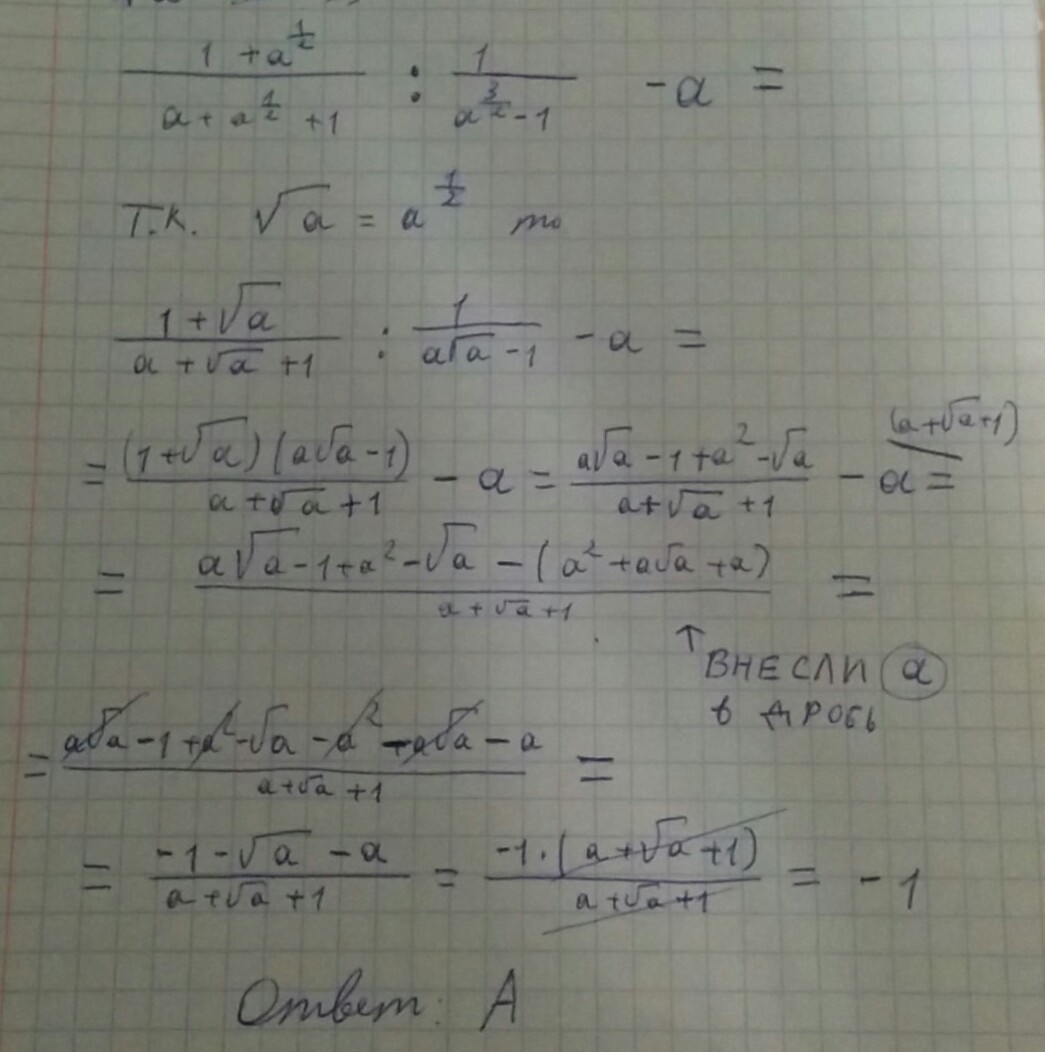 (1 + a^(1/2)) / (a + a^(1/2) + 1) : 1 / (a^(3/2) - 1) - a =
Т.К. √a = a^(1/2) то
(1 + √a) / (a + √a + 1) : 1 / (a√a - 1) - a =
= (1 + √a)(a√a - 1) / (a + √a + 1) - a = (a√a - 1 + a² - √a) / (a + √a + 1) - a (a + √a + 1) =
= (a√a - 1 + a² - √a - (a² + a√a + a)) / (a + √a + 1) =
↑ ВНЕСЛИ a
в ДРОБЬ
= (a√a - 1 + a² - √a - a² - a√a - a) / (a + √a + 1) =
= (-1 - √a - a) / (a + √a + 1) = -1 · (a + √a + 1) / (a + √a + 1) = -1
Ответ: А